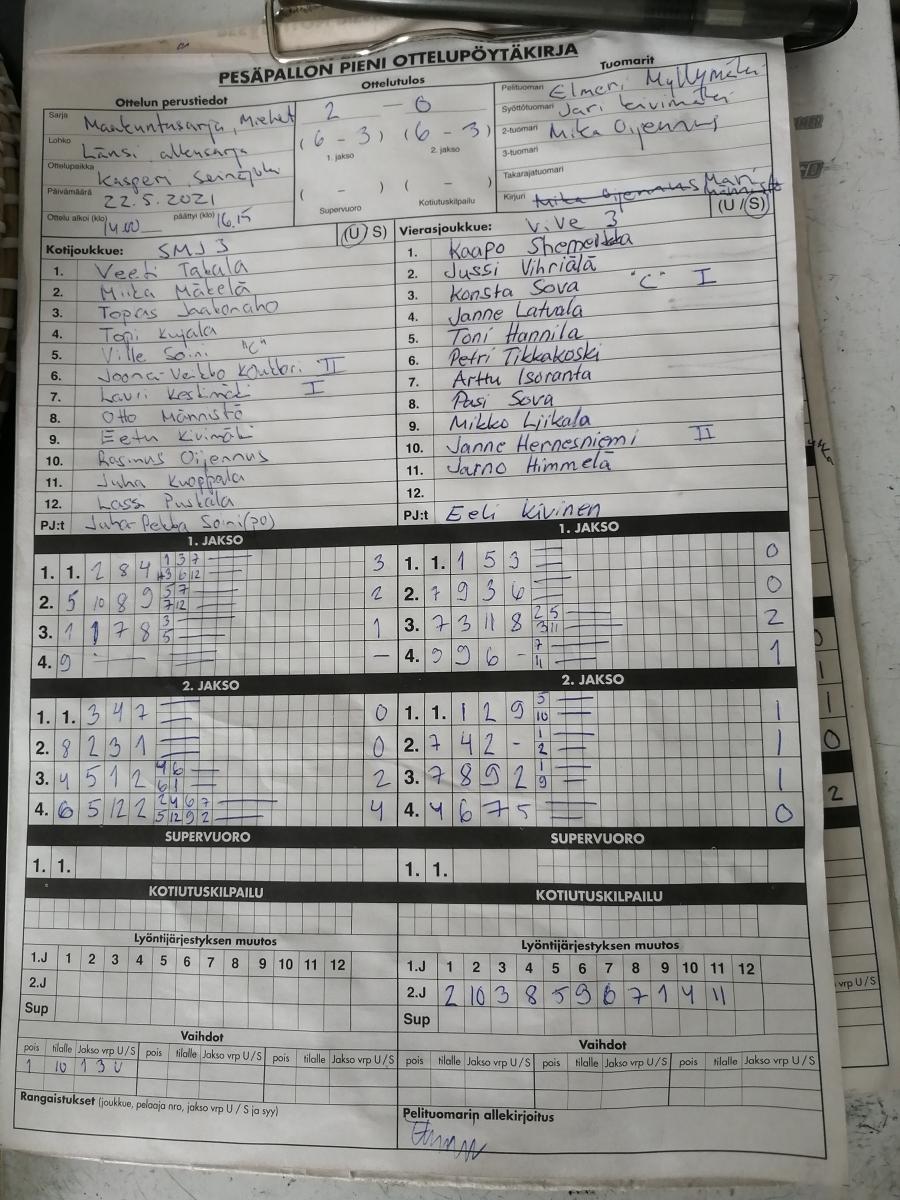 PESÄPALLON PIENI OTTELUPÖYTÄKIRJA
Ottelun perustiedot
Sarja Maakuntasarja, Miehet
Lohko Länsi alkusarja
Ottelupaikka Kasperi Seinäjoki
Päivämäärä 22.5.2021
Ottelu alkoi (klo) 14.00 päättyi (klo) 16.15
Ottelutulos
2 - 0
(6 - 3) (6 - 3)
1. jakso 2. jakso
( - ) ( - )
Supervuoro Kotiutuskilpailu
Tuomarit
Pelituomari Elmeri Myllymäki
Syöttötuomari Jari Kivimäki
2-tuomari Mika Oijennus
3-tuomari
Takarajatuomari
Kirjuri Mika Oijennus
Kotijoukkue: SMJ 3 (U / S)
1. Veeti Takala
2. Miika Mäkelä
3. Topias Jaakonaho
4. Topi Kujala
5. Ville Soini "C"
6. Joona-Veikko Kouhi II
7. Lauri Keskimäki I
8. Otto Männistö
9. Eetu Kivimäki
10. Rasmus Oijennus
11. Juha Kuoppala
12. Lassi Puskala
PJ:t Juha-Pekka Soini (po)
Vierasjoukkue: ViVe 3 (U / S)
1. Kaapo Shemeikka
2. Jussi Vihriälä
3. Konsta Sova "C" I
4. Janne Latvala
5. Toni Hannila
6. Petri Tikkakoski
7. Arttu Isoranta
8. Pasi Sova
9. Mikko Liikala
10. Janne Hernesniemi II
11. Jarno Himmelä
12.
PJ:t Eeli Kivinen
1. JAKSO
1. 1. 2 8 4 1 3 7 3 6 12 3
2. 5 10 8 9 5 7 7 12 2
3. 1 1 7 8 3 5 1
4. 9 - -
1. JAKSO
1. 1. 1 5 3 0
2. 7 9 3 6 0
3. 7 3 11 8 2 5 3 11 2
4. 9 9 6 - 7 11 1
2. JAKSO
1. 1. 3 4 7 0
2. 8 2 3 1 0
3. 4 5 1 2 4 6 6 1 2
4. 6 5 12 2 2 4 6 7 5 12 9 2 4
2. JAKSO
1. 1. 1 2 9 5 10 1
2. 7 4 2 - 1 2 1
3. 7 8 9 2 1 9 1
4. 4 6 7 5 0
SUPERVUORO
1. 1.
SUPERVUORO
1. 1.
KOTIUTUSKILPAILU
KOTIUTUSKILPAILU
Lyöntijärjestyksen muutos
1.J 1 2 3 4 5 6 7 8 9 10 11 12
2.J
Sup
Lyöntijärjestyksen muutos
1.J 1 2 3 4 5 6 7 8 9 10 11 12
2.J 2 10 3 8 5 9 6 7 1 4 11
Sup
Vaihdot
pois tilalle Jakso vrp U / S pois tilalle Jakso vrp U / S pois tilalle Jakso vrp U / S
1 10 1 3 U
Vaihdot
pois tilalle Jakso vrp U / S pois tilalle Jakso vrp U / S pois tilalle Jakso vrp U / S
Rangaistukset (joukkue, pelaaja nro, jakso vrp U / S ja syy)
Pelituomarin allekirjoitus
vrp U / S